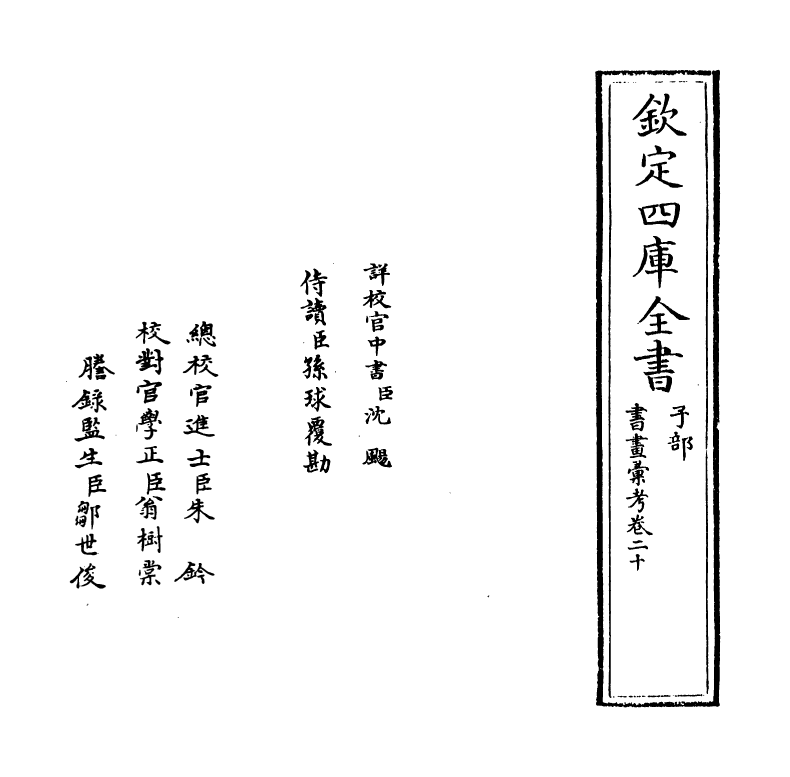 欽定四庫全書
子部
書畫彙考卷二十
詳校官中書臣沈颺
侍讀臣孫球覆勘
總校官進士臣朱鈐
校對官學正臣翁樹棠
謄錄監生臣鄒世俊